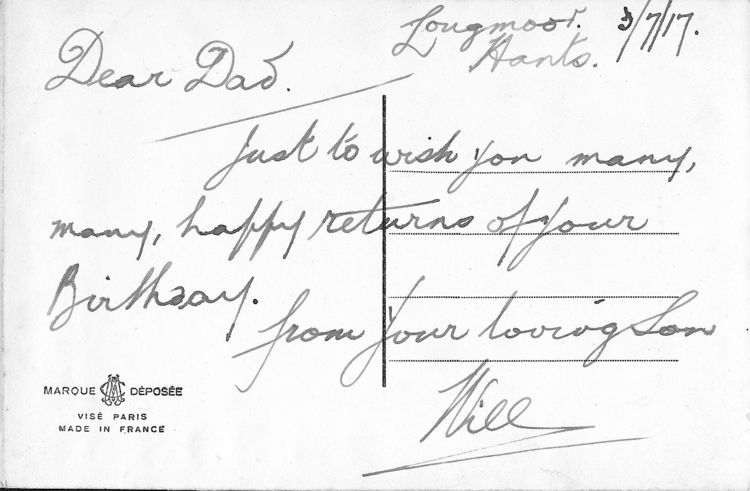 Longmoor. 3/7/17.
Hants.
Dear Dad.
Just to wish you many,
many, happy returns of your
Birthday.
from your loving Son
Will
MARQUE DÉPOSÉE
VISÉ PARIS
MADE IN FRANCE